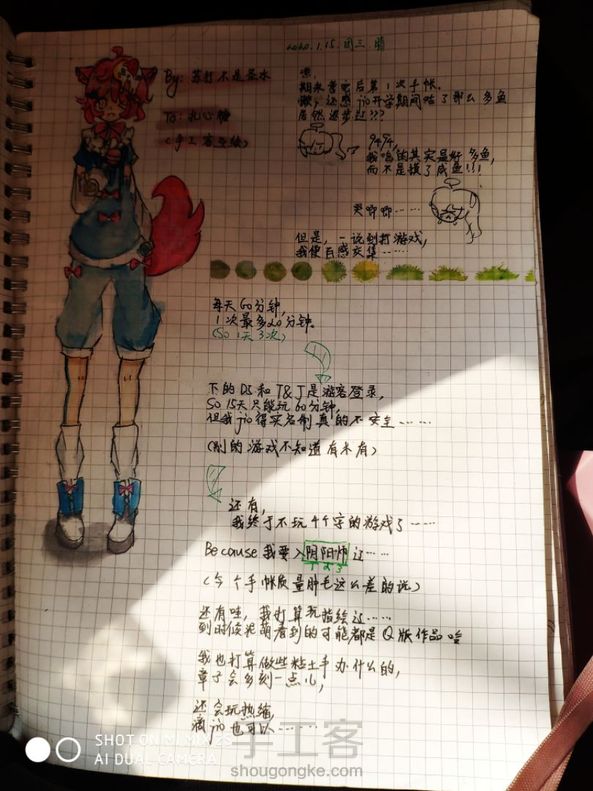 2020.1.15.周三 晴
By: 苏打不是墨水
To: 扎心糖
(手工客专绘)
嘿,
期末考完后第1次手帐,
噢,还感jio开学期间咕了那么多鱼
居然进步过???
我鸽的其实是好多鱼,
而不是摸了咸鱼!!!
哭唧唧……
但是,一说到打游戏,
我便百感交集……
每天60分钟,
1次最多20分钟。
(So 1天3次)
下的DS和T&J是游客登录,
So 15天只能玩60分钟,
但我jio得实名制真的不安全……
(别的游戏不知道有木有)
还有,
我终于不玩4个字的游戏了……
Because 我要入阴阳师辽……
1 2 3
(今个手帐质量肿毛这么差的说)
还有哇,我打算玩指绘辽……
到时候泥萌看到的可能都是Q版作品哈
我也打算做些粘土手办什么的,
章子会多刻一点儿,
还会玩热缩,
滴jio也可以……
SHOT ON MI MIX 2S
AI DUAL CAMERA
手工客
shougongke.com